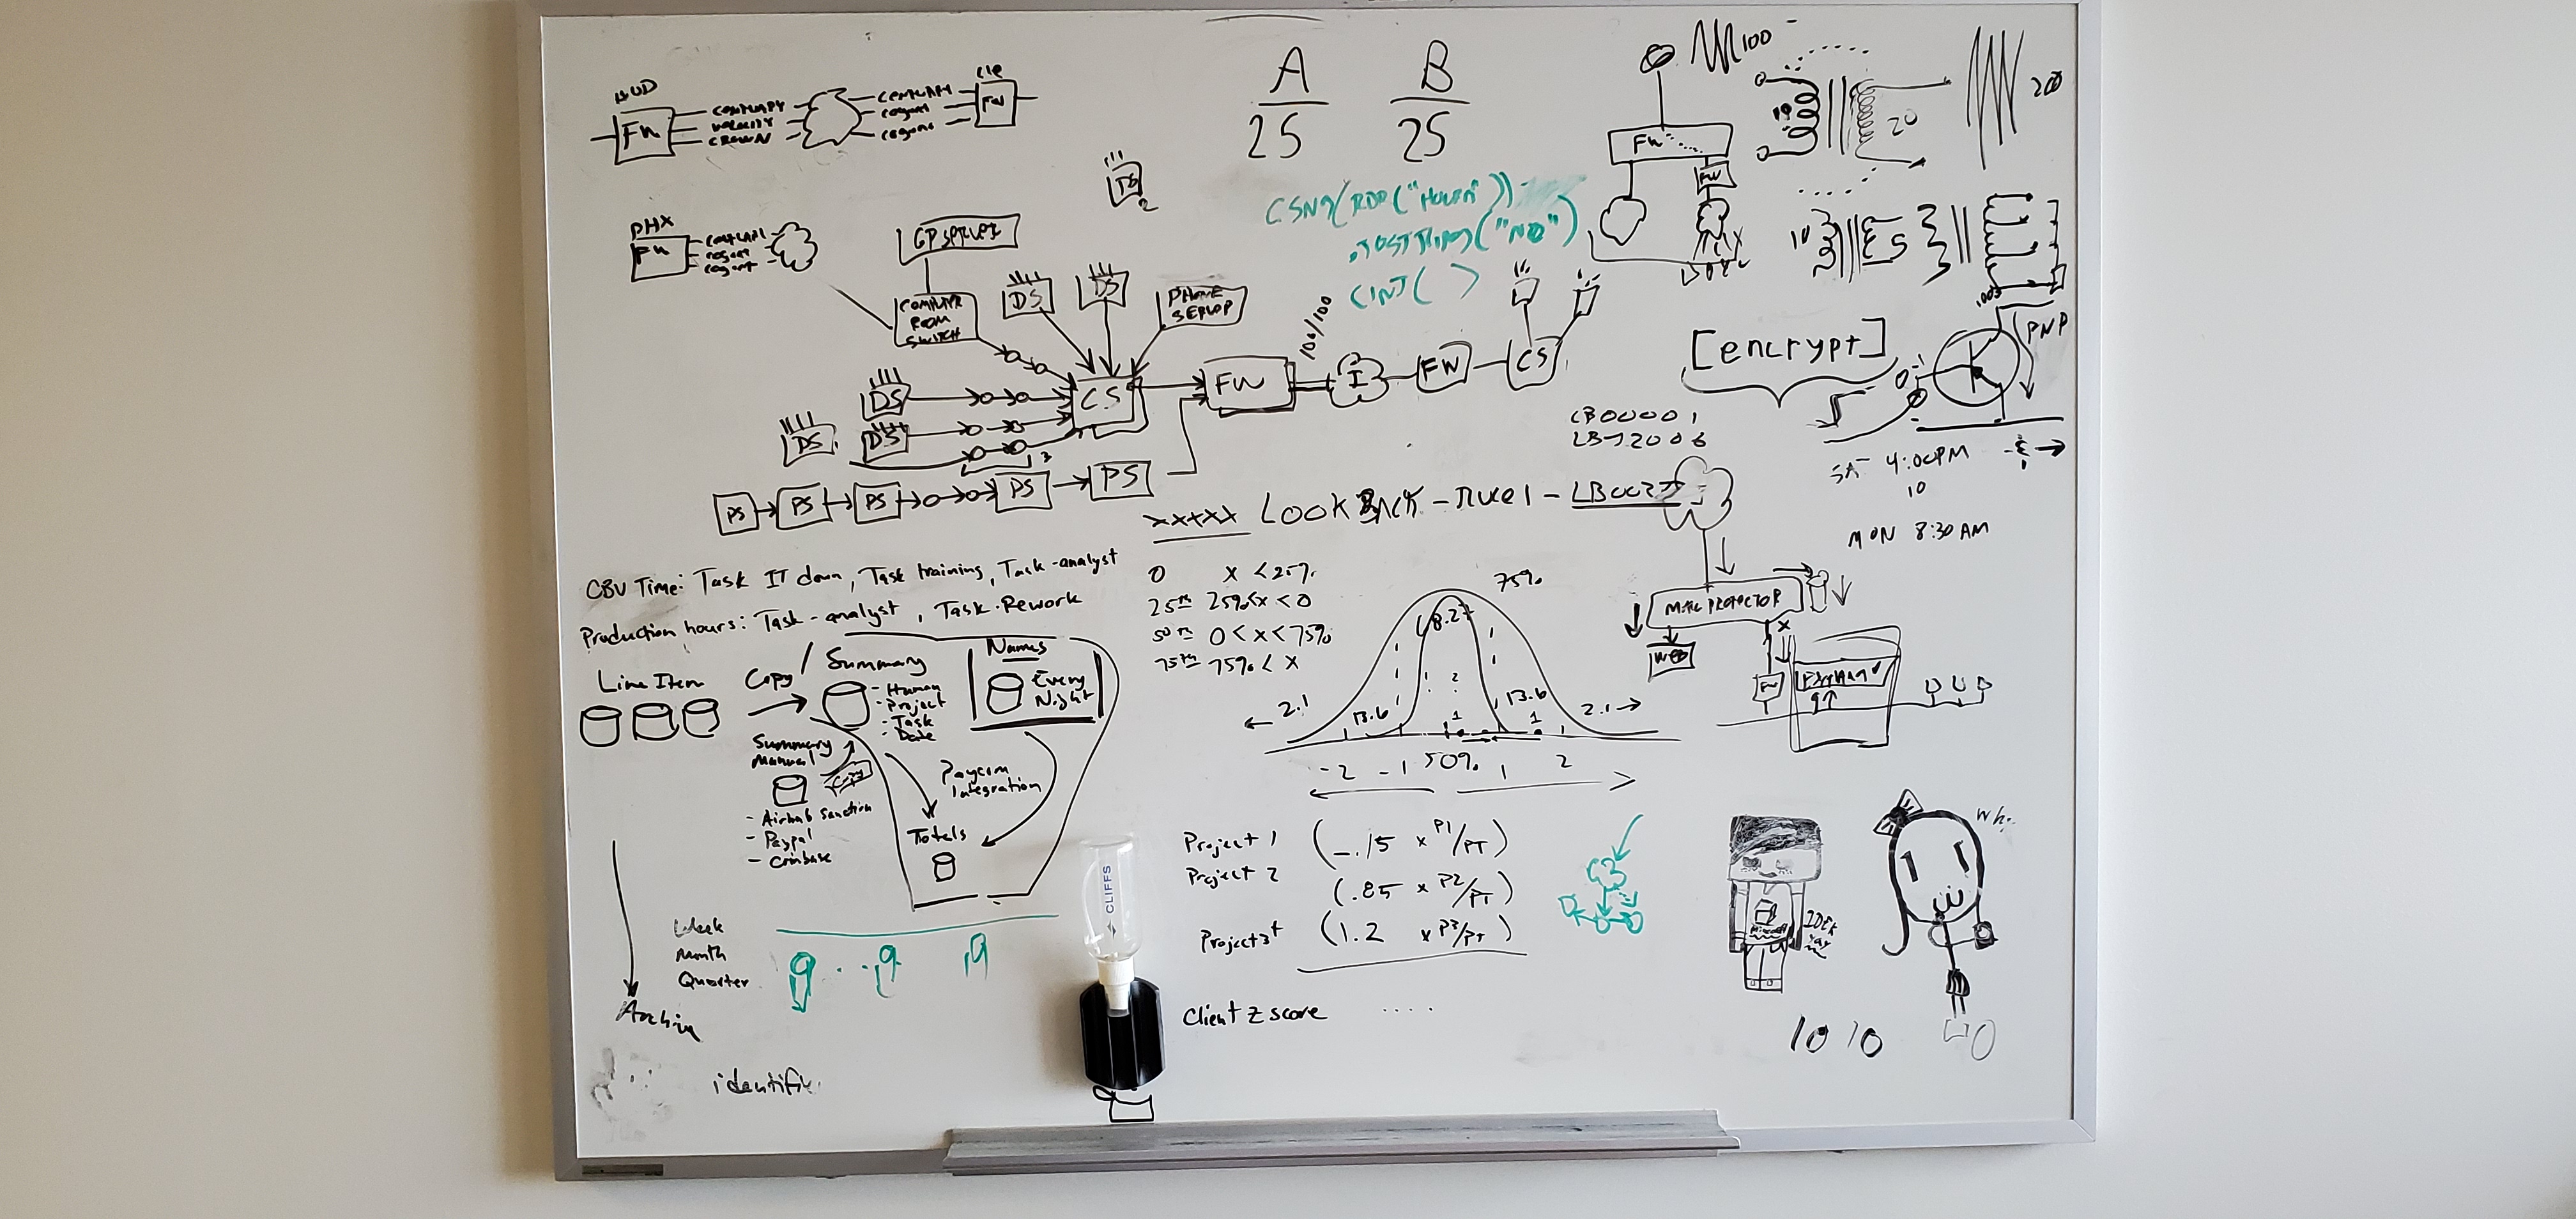 HUD
FW
CENTURY
VELOCITY
CROWN
FW
A
B
25
25
100
200
FW
FW
19
20
DS
2
PHX
DS
DS
COMPUTER
ROOM
SWITCH
PHONE
100/100
CSng(RDR("Hours"))
.TOSTRING("N0")
CINT( )
[encrypt]
PNP
CS
FW
I
FW
CS
DS
DS
DS
PS
PS
PS
PS
PS
10
5
LB00001
LB12006
SAT 4:00PM
10
MON 8:30 AM
XXXXX LOOKBACK
CBV Time: Task IT down, Task training, Task-analyst
Production hours: Task-analyst, Task-Rework
0 x < 25%
25th 25% < x < 0
50th 0 < x < 75%
75th 75% < x
75%
68.27
2.1
13.6
13.6
2.1
-2 -1 50% 1 2
MAIL PROTECTOR
WEB
FW
Line Item
Copy
Summary
- Human
- Project
- Task
- Date
Names
Every
Night
Summary
Manual
Copy
- Airbnb Sanction
- Paypal
- Coinbase
Paycom
Integration
Totals
Week
Month
Quarter
identify
CLIFFS
Project 1 (-.15 x P1/PT)
Project 2 (.85 x P2/PT)
Project 3+ (1.2 x P3/PT)
Client Z score ....
Minecraft
10 10